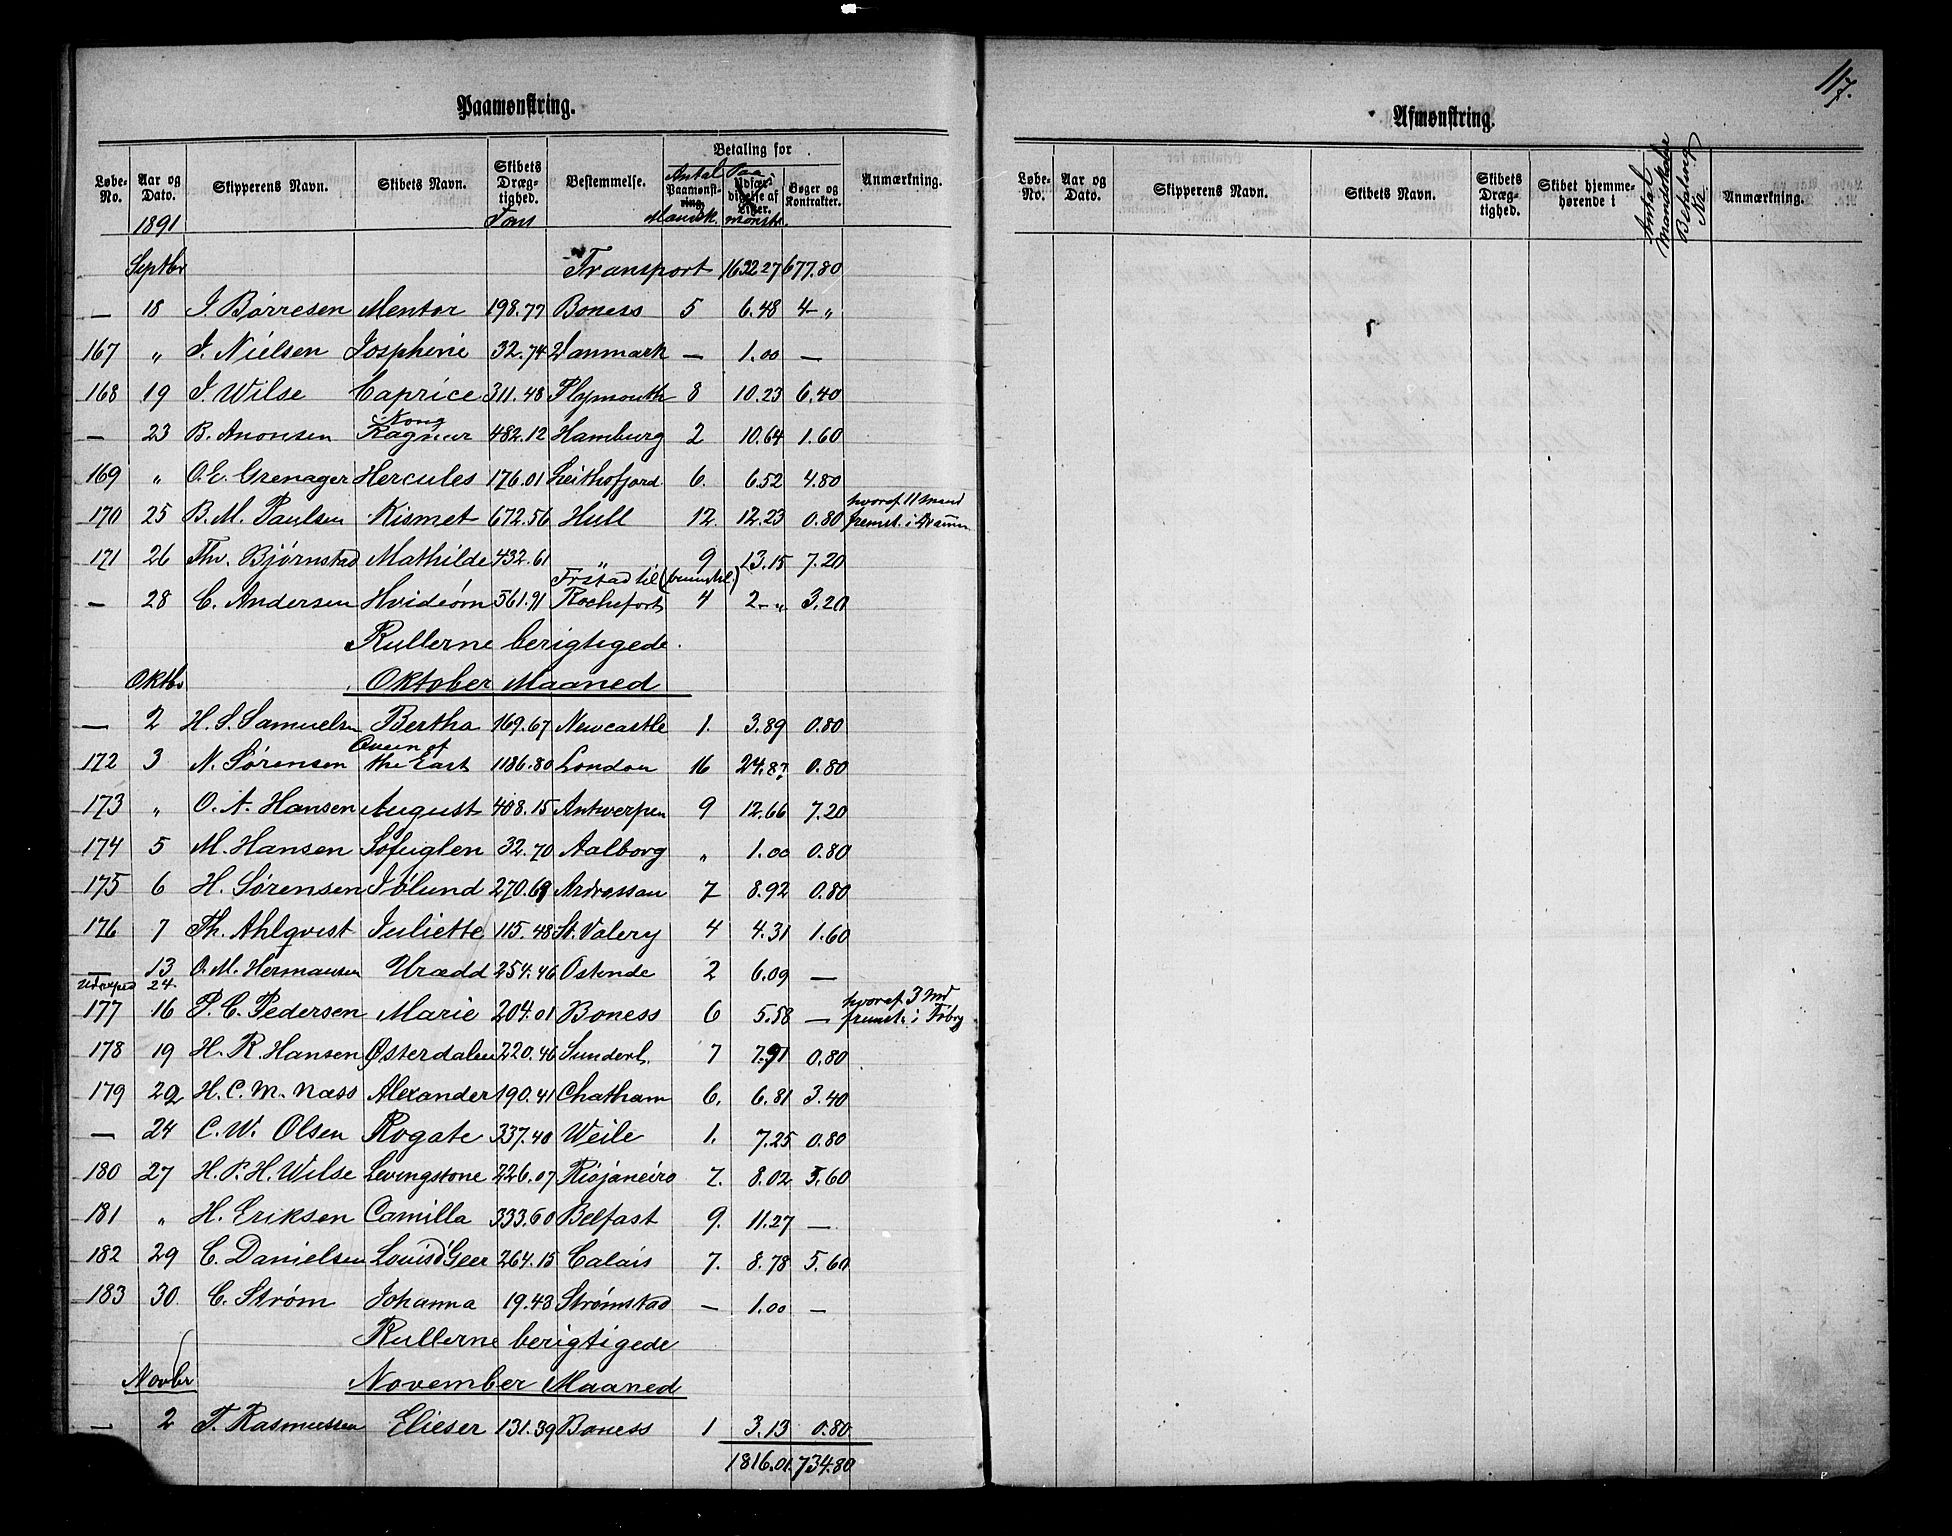 117.
Paamønstring.
Løbe-No. Aar og Dato. Skipperens Navn. Skibets Navn. Skibets Dræg-tighed. Bestemmelse. Betaling for Paamønst-ring. Udfær-digelse af Lister. Bøger og Kontrakter. Anmærkning.
1891 Tons Antal Mandsk. Paa-mønstr.
Septbr Transport 1632.27 677.80
— 18 J. Børresen Mentor 198.77 Boness 5 6.48 4 - „
167 „ J. Nielsen Josphine 32.74 Danmark — 1.00 —
168 19 J. Wilse Caprice 311.48 Plymouth 8 10.23 6.40
— 23 B. Anonsen Kong Ragnar 482.12 Hamburg 2 10.64 1.60
169 „ O. E. Grenager Hercules 176.01 Leithofjord 6. 6.52 4.80
170 25 B. M. Paulsen Kismet 672.56 Hull 12. 12.23 0.80 hvoraf 11 mand fremst. i Dramm
171 26 Thv. Bjørnstad Mathilde 432.61 „ 9 13.15 7.20
— 28 C. Andersen Hvideørn 561.91 Frstad til Rochefort 4 2 - „ 3.20
Rullerne berigtigede.
Oktbr Oktober Maaned
— 2 H. S. Samuelsn Bertha 169.67 Newcastle 1. 3.89 0.80
172 3 N. Sørensen Queen of the East 1186.80 London 16 24.87 0.80
173 „ O. A. Hansen August 408.15 Antwerpen 9 12.66 7.20
174 5 M. Hansen Søfuglen 32.70 Aalborg „ 1.00 0.80
175 6 H. Sørensen Iølund 270.68 Ardrossan 7 8.92 0.80
176 7 Th. Ahlqvist Juliette 115.48 St. Valery 4 4.31 1.60
— 13 O. M. Hermansen Urædd 254.46 Ostende 2 6.09 —
24.
177 16 P. C. Pedersen Marie 204.01 Boness 6 5.58 — hvoraf 3 Md fremst. i Tsbrg
178 19 H. R. Hansen Østerdalen 220.46 Sunderl. 7 7.91 0.80
179 22 H. C. M. Næss Alexander 190.41 Chatham 6. 6.81 3.40
— 24 C. W. Olsen Rogate 337.40 Weile 1. 7.25 0.80
180 27 H. P. H. Wilse Levingstone 226.07 Riojaneiro 7. 8.02 5.60
181 „ H. Eriksen Camilla 333.60 Belfast 9. 11.27 —
182 29 C. Danielsen Louis d'Geer 264.15 Calais 7. 8.78 5.60
183 30 C. Strøm Johanna 19.43 Strømstad — 1.00 —
Rullerne berigtigede
Novbr November Maaned
— 2 T. Rasmussen Elieser 131.39 Boness 1 3.13 0.80
1816.01. 734.80
Afmønstring.
Løbe-No. Aar og Dato. Skipperens Navn. Skibets Navn. Skibets Dræg-tighed. Skibet hjemme-hørende i Antal Mandskabe Betaling Kr. Anmærkning.